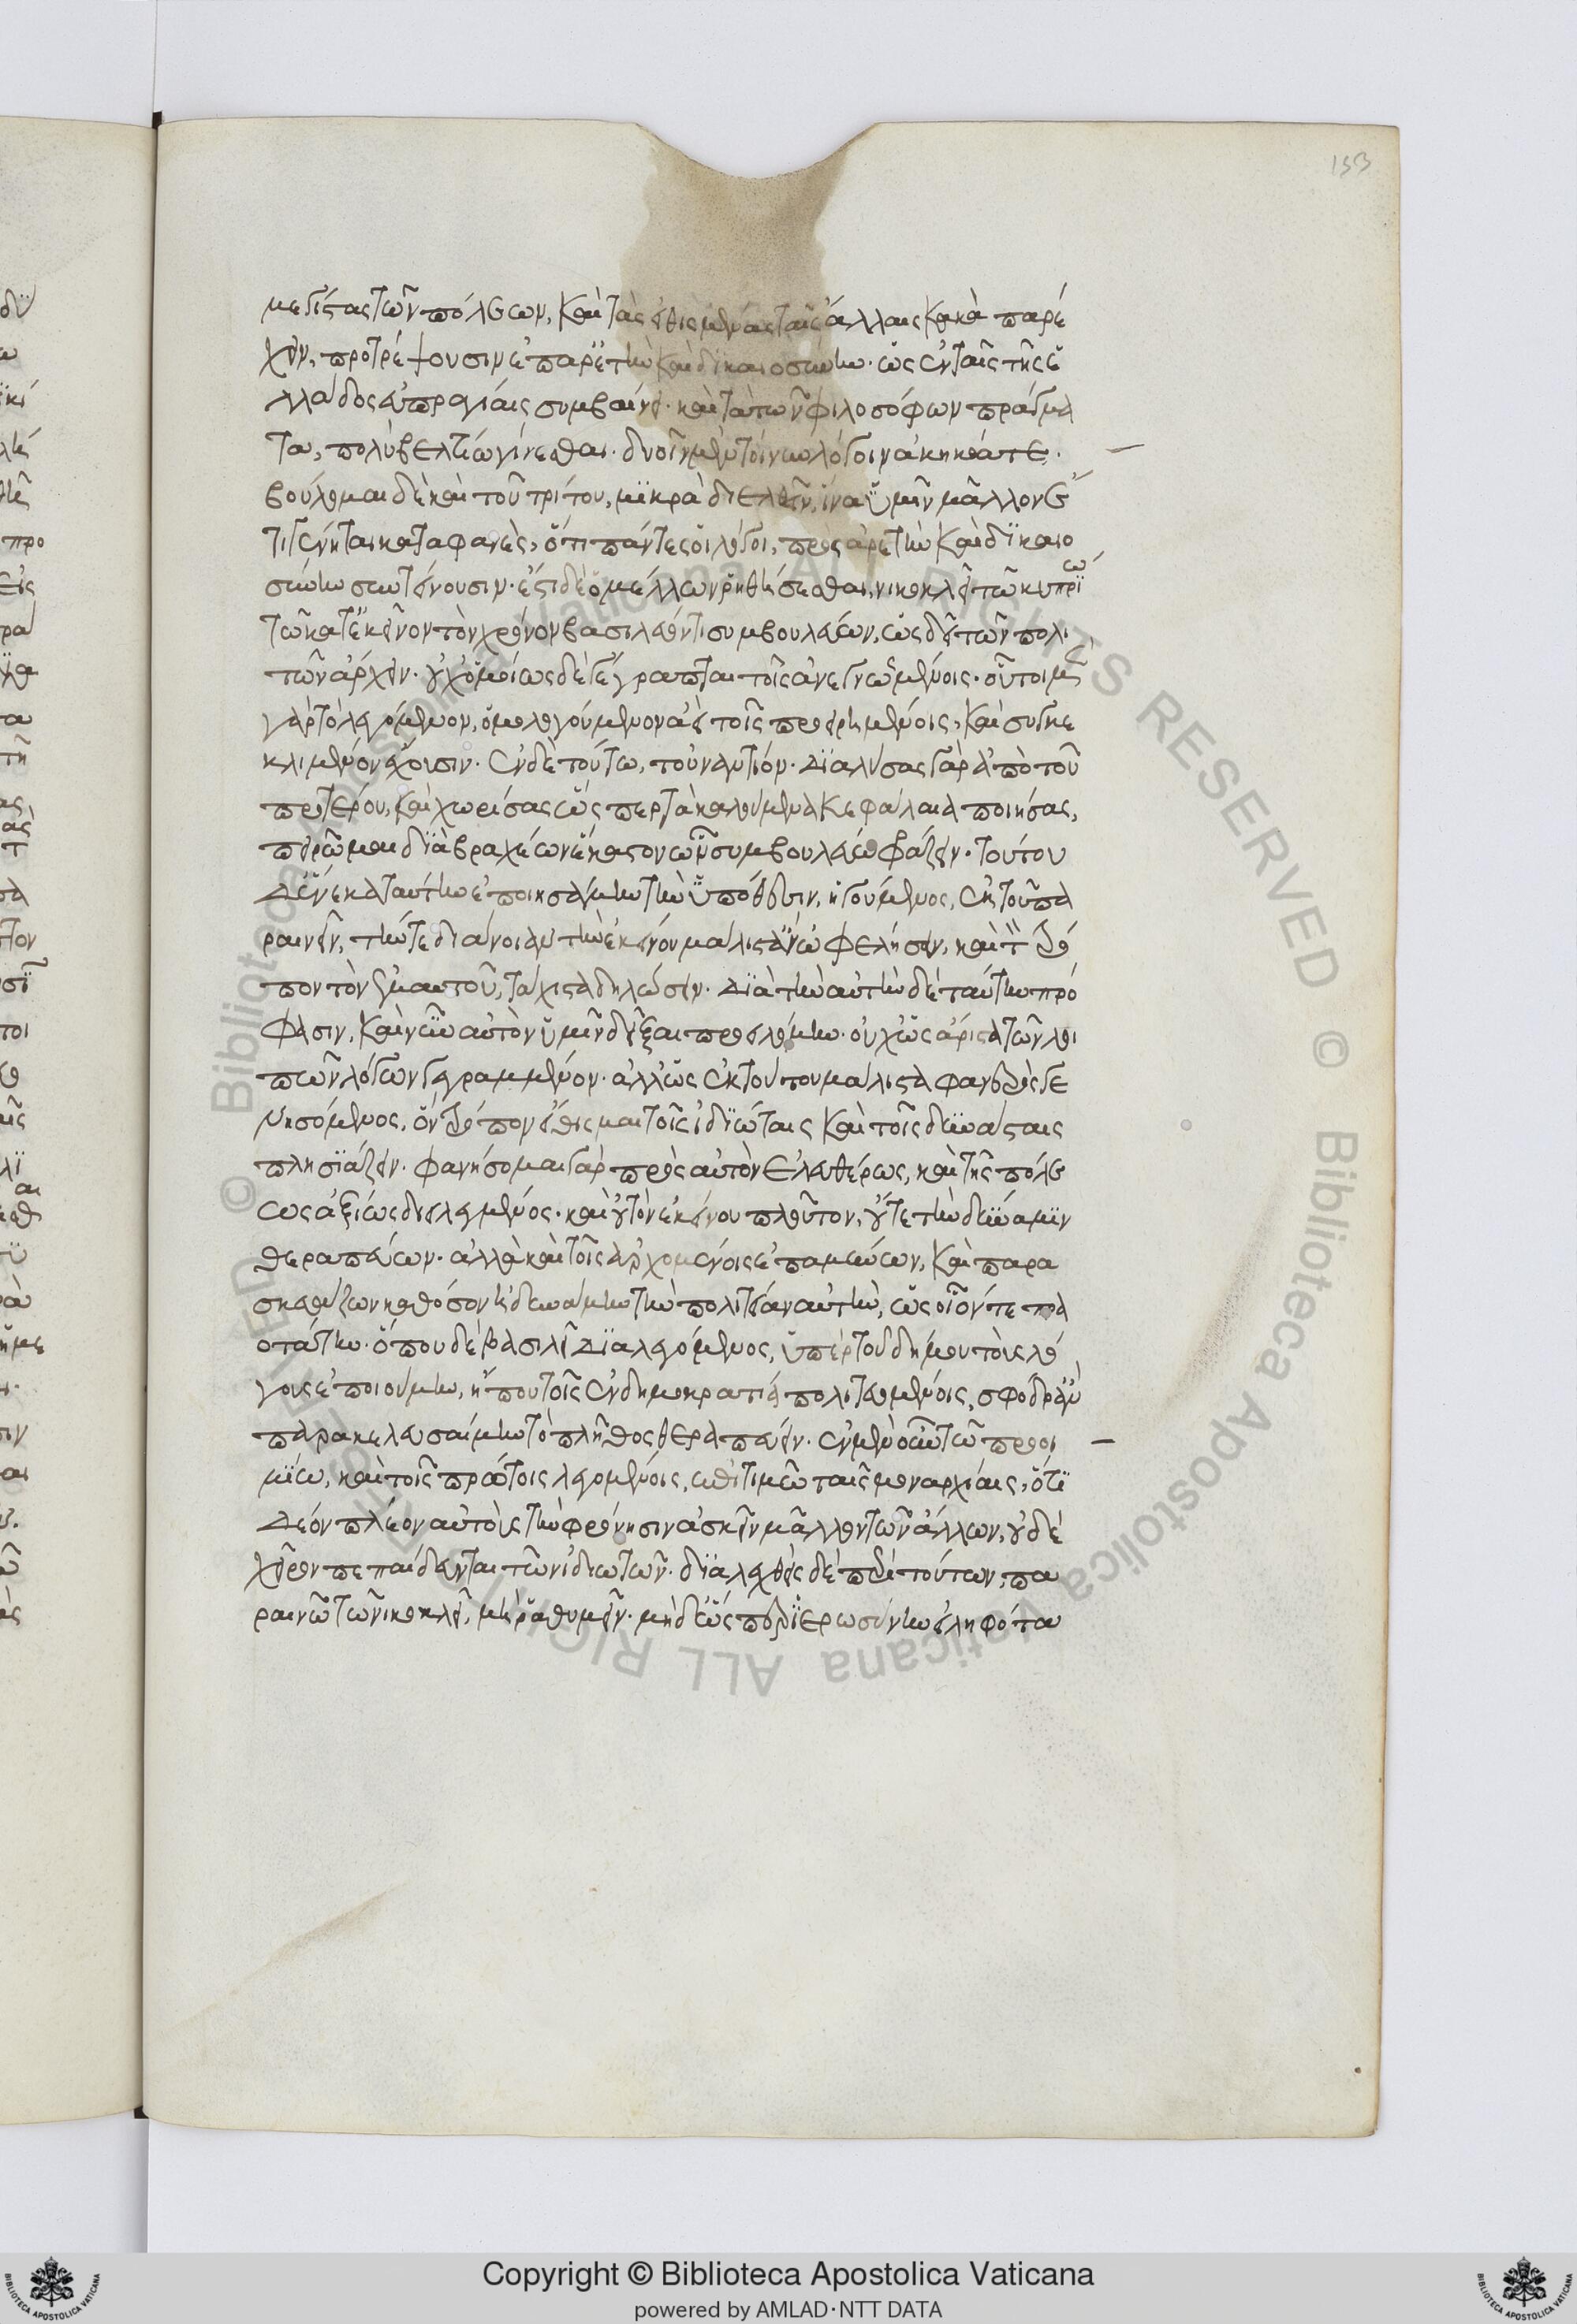 133
μεγίστας τῶν πόλεων, καὶ τὰς εἰθισμένας ταῖς ἄλλαις κακὰ παρέ
χειν, προτρέψουσιν ἐπ' ἀρετὴν καὶ δικαιοσύνην. ὡς ἐν ταῖς τῆς ἑ
λλάδος εὐπραγίαις συμβαίνει. καὶ τὰ τῶν φιλοσόφων πράγμα
τα, πολὺ βελτίω γίνεσθαι. δυοῖν μὲν τοίνυν λόγοιν ἀκηκόατε.
βούλομαι δὲ καὶ τοῦ τρίτου, μικρὰ διελθεῖν, ἵνα ὑμῖν μᾶλλον ἔ
τι γένηται καταφανὲς, ὅτι πάντες οἱ λόγοι, πρὸς ἀρετὴν καὶ δικαιο
σύνην συντείνουσιν. ἔστι δὲ ὁ μέλλων ῥηθήσεσθαι, νικοκλεῖ τῶ κυπρίω
τῶ κατ' ἐκεῖνον τὸν χρόνον βασιλεύοντι συμβουλεύων, ὡς δεῖ τῶν πολι
τῶν ἄρχειν. οὐχ ὁμοίως δὲ γέγραπται τοῖς ἀνεγνωσμένοις. οὗτοι μὲν
γὰρ τὸ λεγόμενον, ὁμολογούμενον ἀεὶ τοῖς προειρημένοις, καὶ συγκε
κλιμένον ἔχουσιν. ἐν δὲ τούτω, τοὐναντίον. διαλύσας γὰρ ἀπὸ τοῦ
προτέρου, καὶ χωρίσας ὥσπερ τὰ καλούμενα κεφάλαια ποιήσας,
πειρῶμαι διὰ βραχέων ἕκαστον ὧν συμβουλεύω φράζειν. τούτου
δ' ἕνεκα ταύτην ἐποιησάμην τὴν ὑπόθεσιν, ἡγούμενος, ἐκ τοῦ πα
ραινεῖν, τήν τε διάνοιαν τὴν ἐκείνου μάλιστ' ἂν ὠφελήσειν, καὶ τὸν τρό
πον τὸν ἐμαυτοῦ, τάχιστα δηλώσειν. διὰ τὴν αὐτὴν δὲ ταύτην πρό
φασιν, καὶ νῦν αὐτὸν ὑμῖν δεῖξαι προειλόμην. οὐχ ὡς ἄριστα τῶν λοι
πῶν λόγων γεγραμμένον. ἀλλ' ὡς ἐκ τούτου μάλιστα φανερὸς γε
νησόμενος, ὃν τρόπον εἴθισμαι τοῖς ἰδιώταις καὶ τοῖς δυνάσταις
πλησιάζειν. φανήσομαι γὰρ πρὸς αὐτὸν ἐλευθέρως, καὶ τῆς πόλε
ως ἀξίως διειλεγμένος. καὶ οὐ τὸν ἐκείνου πλοῦτον, οὔτε τὴν δύναμιν
θεραπεύων. ἀλλὰ καὶ τοῖς ἀρχομένοις ἐπαμύνων, καὶ παρα
σκευάζων καθόσον ἐδυνάμην τὴν πολιτείαν αὐτὴν, ὡς οἷόν τε πρα
οτάτην. ὅπου δὲ βασιλεῖ διαλεγόμενος, ὑπὲρ τοῦ δήμου τοὺς λό
γους ἐποιούμην, ἦπου τοῖς ἐν δημοκρατία πολιτευομένοις, σφόδρ' ἂν
παρακελευσαίμην τὸ πλῆθος θεραπεύειν. ἐν μὲν οὖν τῶ προοι
μίω, καὶ τοῖς πρώτοις λεγομένοις, ἐπιτιμῶ ταῖς μοναρχίαις, ὅτι
δέον πλέον αὐτοὺς τὴν φρόνησιν ἀσκεῖν μᾶλλον τῶν ἄλλων, οὐδὲ
χεῖρον πεπαίδευνται τῶν ἰδιωτῶν. διαλεχθεὶς δὲ περὶ τούτων, πα
ραινῶ τῶ νικοκλεῖ, μὴ ῥαθυμεῖν. μὴδ' ὥσπερ ἱερωσύνην εἰληφότα
Copyright © Biblioteca Apostolica Vaticana
powered by AMLAD·NTT DATA